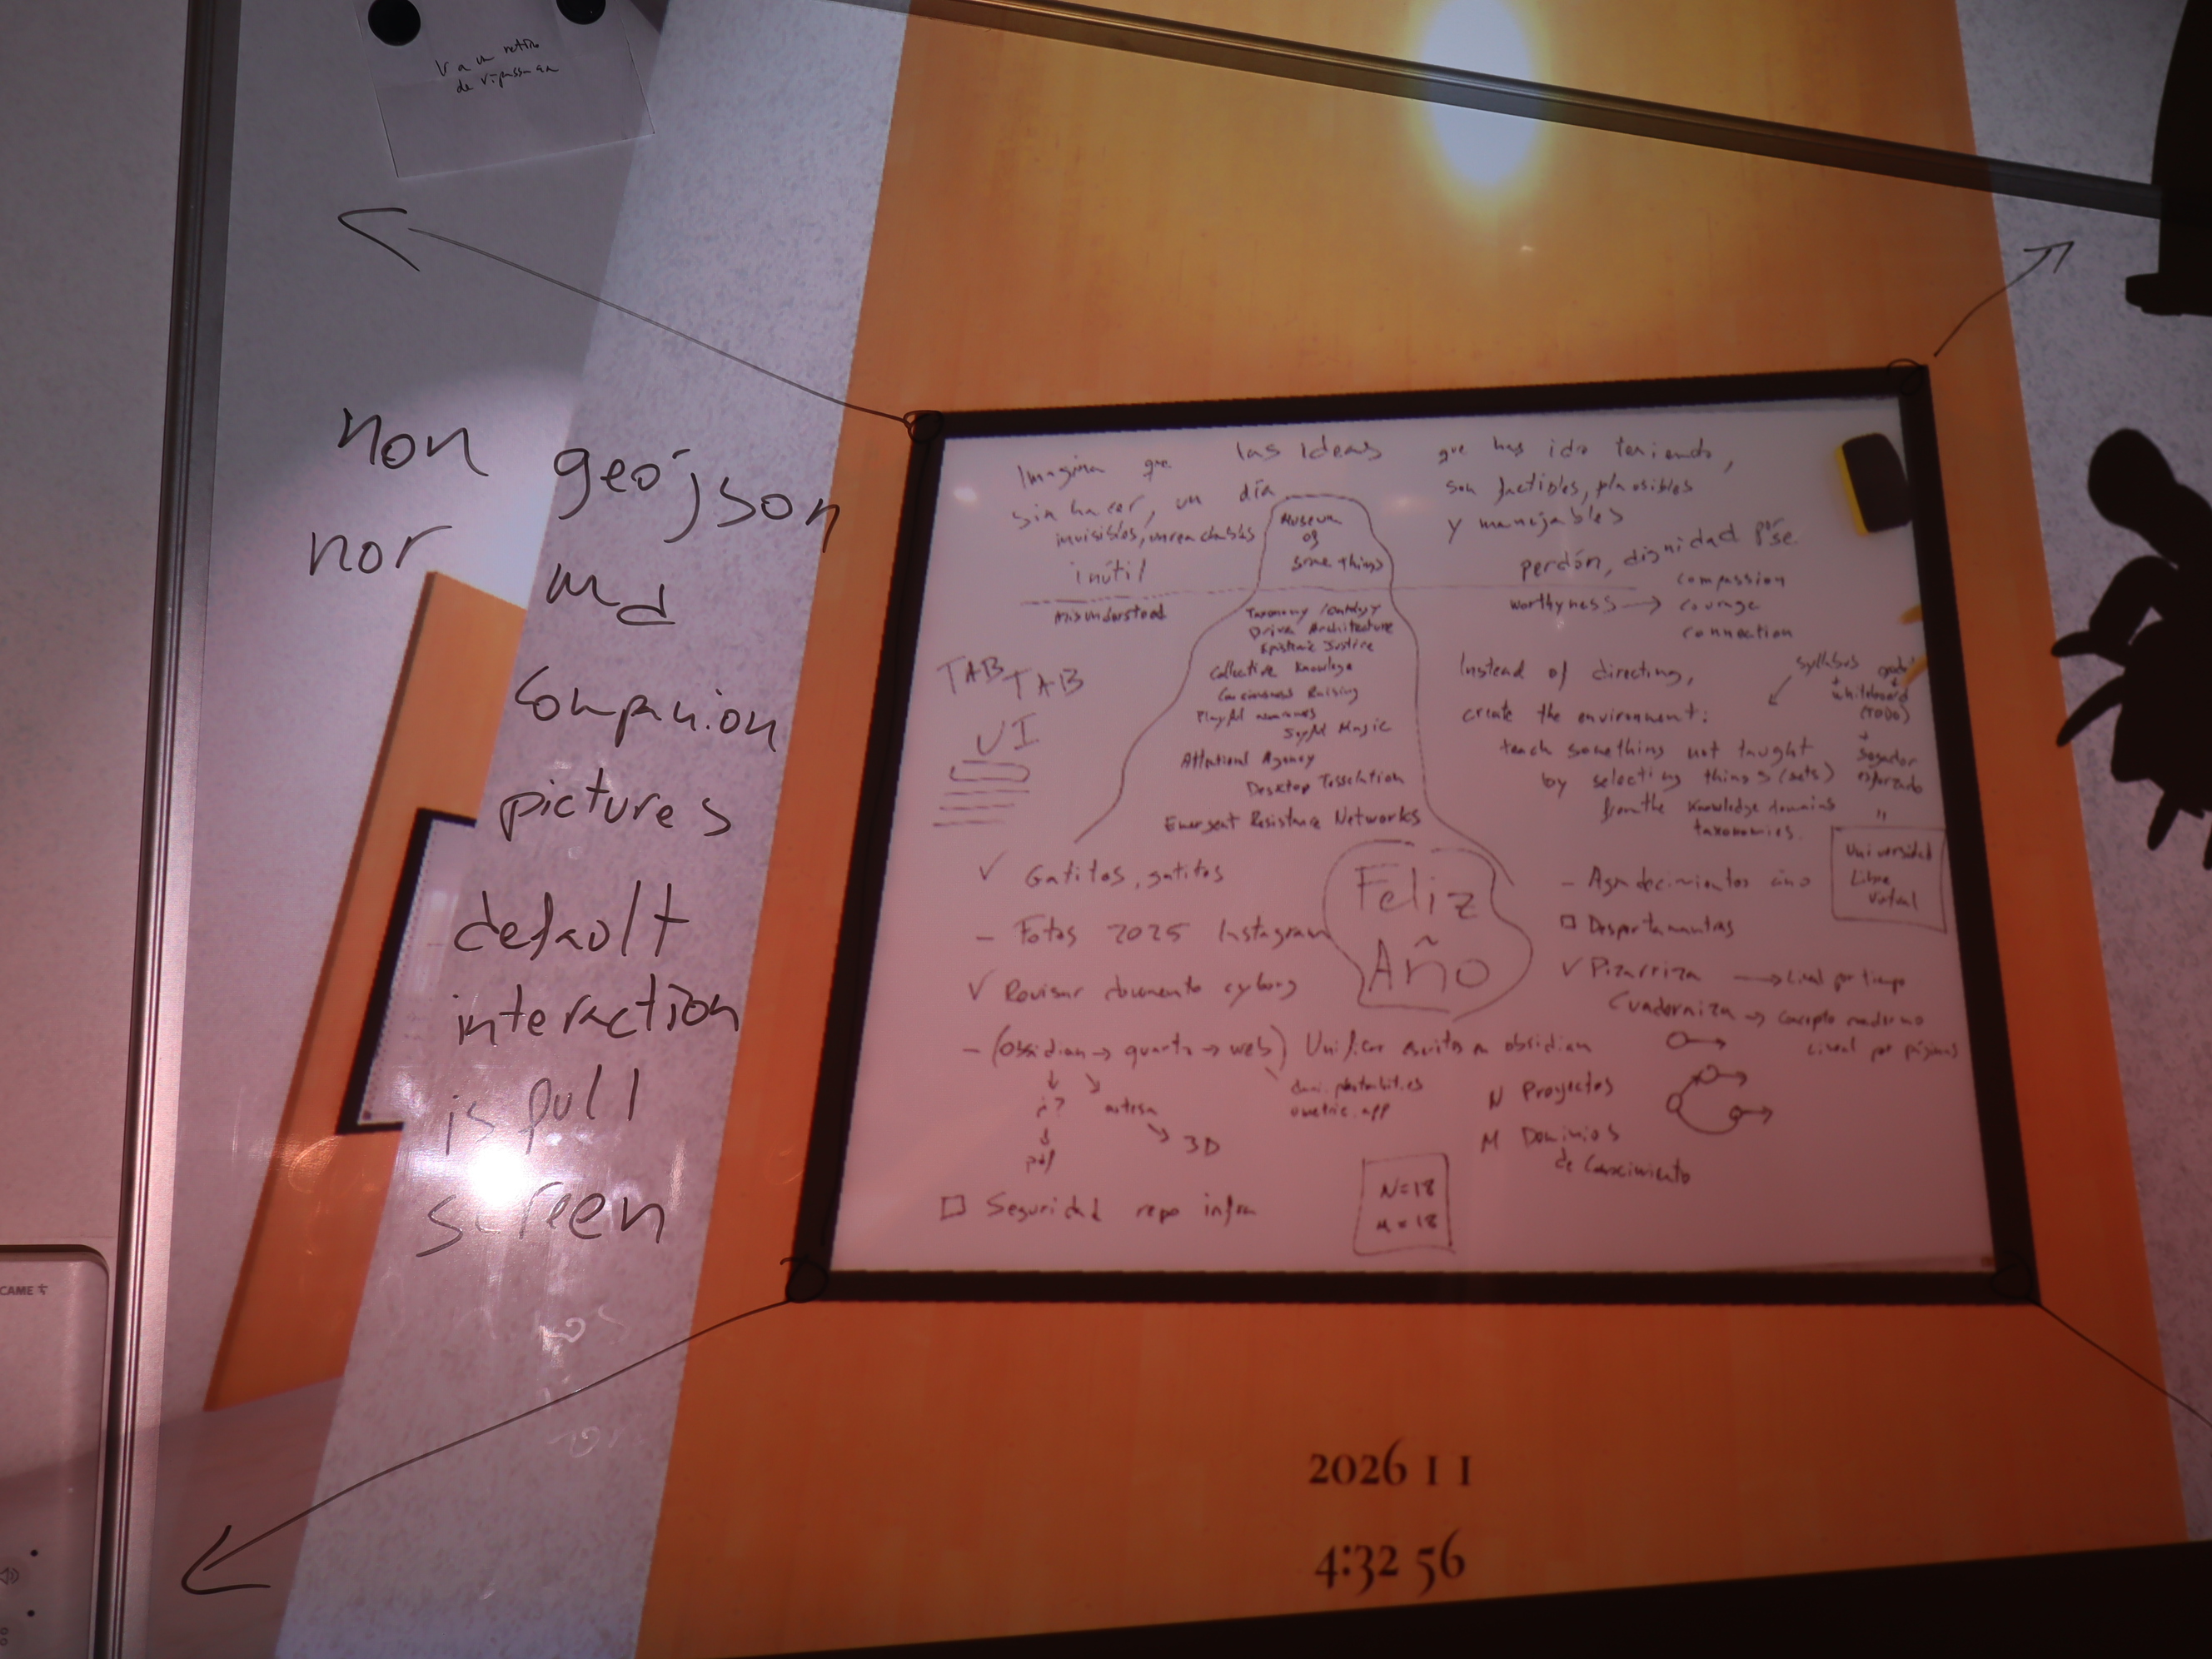 Ir a un retiro
de vipassana
non geojson
nor md
Companion
pictures
default
interaction
is full
screen
Imagina que las ideas que has ido teniendo,
sin hacer, un día son factibles, plausibles
invisibles, unreachables y manejables
inútil
perdón, dignidad per se
misunderstood
worthyness → compassion
courage
connection
Museum
of
some things
Taxonomy / ontology
Driven Architecture
Epistemic Justice
Collective Knowledge
Consciousness Raising
Playful
Joyful Magic
Attentional Agency
Desktop Tessellation
Emergent Resistance Networks
TAB TAB
UI
Instead of directing,
create the environment:
teach something not taught
by selecting things (sets)
from the knowledge domains
taxonomies.
syllabus
whiteboard
(TODO)
esforzado
Universidad
Libre
Virtual
✓ Gatitos, gatitos
- Fotos 2025 Instagram
✓ Revisar documento cyborg
- (Obsidian → quarto → web) Unificar escritos en obsidian
¿?
pdf
3D
□ Seguridad repo infra
Feliz
Año
- Agradecimientos año
□ Despertamantras
✓ Pizarriza → Lineal por tiempo
Cuaderniza → concepto moderno
Lineal por páginas
N Proyectos
M Dominios
de Conocimiento
N=18
M=18
2026 1 1
4:32 56
CAME